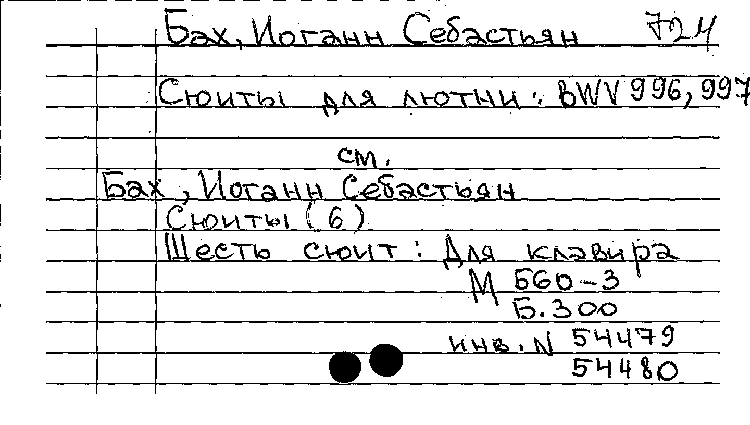 Бах, Иоганн Себастьян 724
Сюиты для лютни: BWV 996, 997
см.
Бах, Иоганн Себастьян
Сюиты (6)
Шесть сюит: Для клавира
М 560-3
Б.300
инв. N 54479
54480